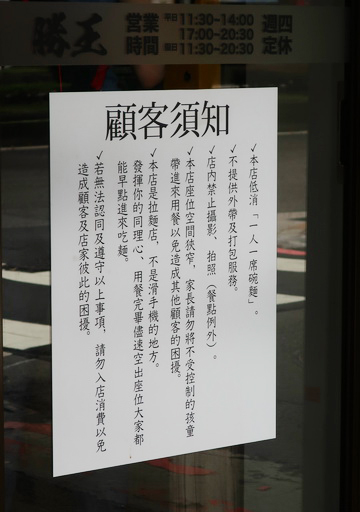 勝王
營業時間
平日11:30-14:00
17:00-20:30
假日11:30-20:30
週四定休
顧客須知
✓本店低消「一人一席碗麵」。
✓不提供外帶及打包服務。
✓店內禁止攝影、拍照（餐點例外）。
✓本店座位空間狹窄，家長請勿將不受控制的孩童
帶進來用餐以免造成其他顧客的困擾。
✓本店是拉麵店，不是滑手機的地方。
發揮你的同理心、用餐完畢儘速空出座位大家都
能早點進來吃麵。
✓若無法認同及遵守以上事項，請勿入店消費以免
造成顧客及店家彼此的困擾。